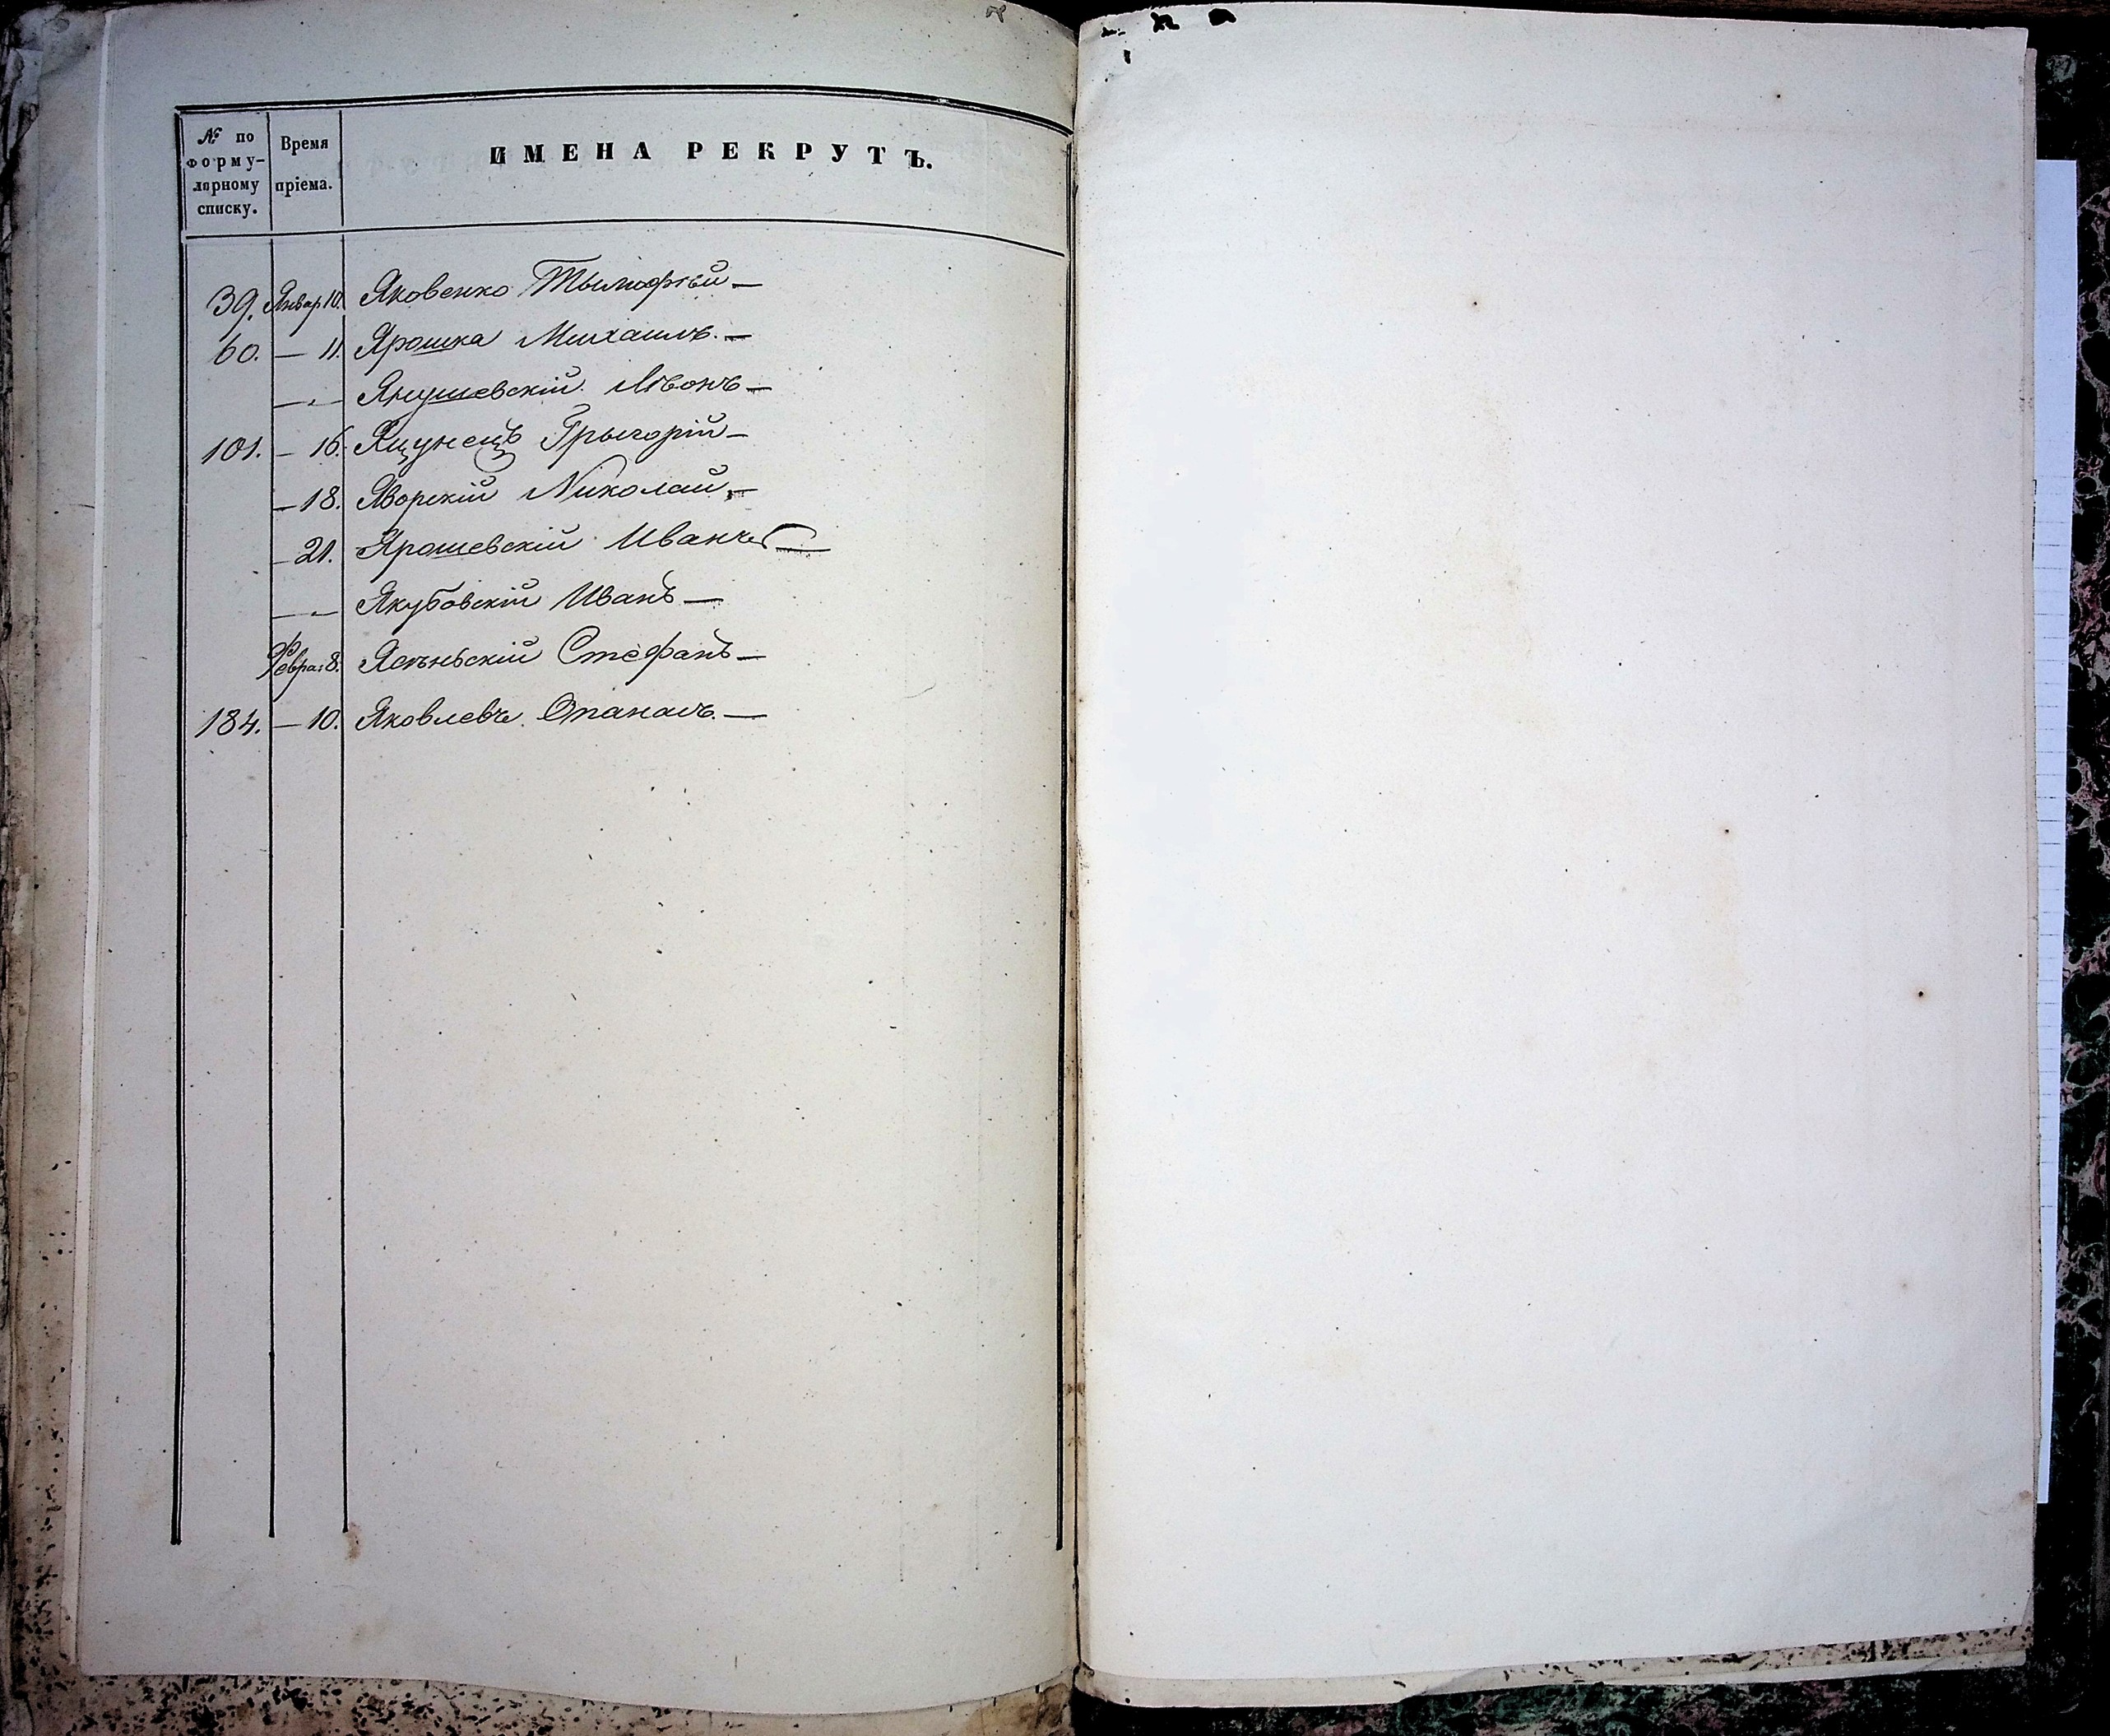 № по форму-лярному списку. Время пріема. ИМЕНА РЕКРУТЪ.
39. Январ 10. Яковенко Тымофѣй —
60. — 11. Ярошка Михаилъ. —
— „ — Янушевскій Лѣонъ —
101. — 16. Ящунецъ Грыгорій —
— 18. Яворскій Николай, —
— 21. Ярошевскій Иванъ —
— „ — Якубовскій Иванъ —
Февра: 8. Стефанъ —
184. — 10. Яковлевъ Опанасъ. —